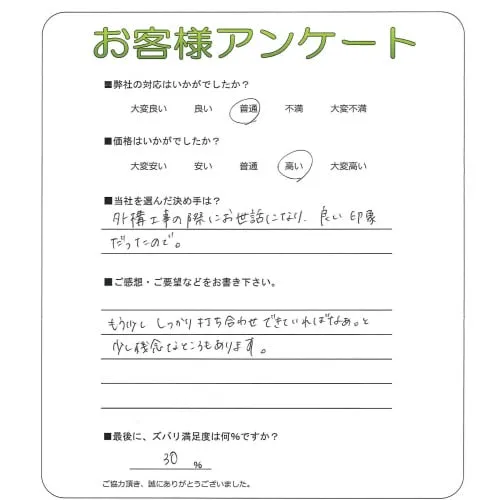 お客様アンケート
■弊社の対応はいかがでしたか？
大変良い 良い 普通 不満 大変不満
■価格はいかがでしたか？
大変安い 安い 普通 高い 大変高い
■当社を選んだ決め手は？
外構工事の際にお世話になり、良い印象
だったので。
■ご感想・ご要望などをお書き下さい。
もう少し しっかり打ち合わせできていればなぁ。と
少し残念なところもあります。
■最後に、ズバリ満足度は何%ですか？
30 %
ご協力頂き、誠にありがとうございました。